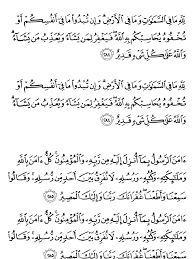 لِّلَّهِ مَا فِى ٱلسَّمَٰوَٰتِ وَمَا فِى ٱلْأَرْضِ وَإِن تُبْدُوا۟ مَا فِىٓ أَنفُسِكُمْ أَوْ
تُخْفُوهُ يُحَاسِبْكُم بِهِ ٱللَّهُ فَيَغْفِرُ لِمَن يَشَآءُ وَيُعَذِّبُ مَن يَشَآءُ
وَٱللَّهُ عَلَىٰ كُلِّ شَىْءٍ قَدِيرٌ ٢٨٤
لِّلَّهِ مَا فِى ٱلسَّمَٰوَٰتِ وَمَا فِى ٱلْأَرْضِ وَإِن تُبْدُوا۟ مَا فِىٓ أَنفُسِكُمْ أَوْ
تُخْفُوهُ يُحَاسِبْكُم بِهِ ٱللَّهُ فَيَغْفِرُ لِمَن يَشَآءُ وَيُعَذِّبُ مَن يَشَآءُ
وَٱللَّهُ عَلَىٰ كُلِّ شَىْءٍ قَدِيرٌ ٢٨٤
ءَامَنَ ٱلرَّسُولُ بِمَآ أُنزِلَ إِلَيْهِ مِن رَّبِّهِۦ وَٱلْمُؤْمِنُونَ كُلٌّ ءَامَنَ بِٱللَّهِ
وَمَلَٰٓئِكَتِهِۦ وَكُتُبِهِۦ وَرُسُلِهِۦ لَا نُفَرِّقُ بَيْنَ أَحَدٍ مِّن رُّسُلِهِۦ وَقَالُوا۟
سَمِعْنَا وَأَطَعْنَا غُفْرَانَكَ رَبَّنَا وَإِلَيْكَ ٱلْمَصِيرُ ٢٨٥
ءَامَنَ ٱلرَّسُولُ بِمَآ أُنزِلَ إِلَيْهِ مِن رَّبِّهِۦ وَٱلْمُؤْمِنُونَ كُلٌّ ءَامَنَ بِٱللَّهِ
وَمَلَٰٓئِكَتِهِۦ وَكُتُبِهِۦ وَرُسُلِهِۦ لَا نُفَرِّقُ بَيْنَ أَحَدٍ مِّن رُّسُلِهِۦ وَقَالُوا۟
سَمِعْنَا وَأَطَعْنَا غُفْرَانَكَ رَبَّنَا وَإِلَيْكَ ٱلْمَصِيرُ ٢٨٥